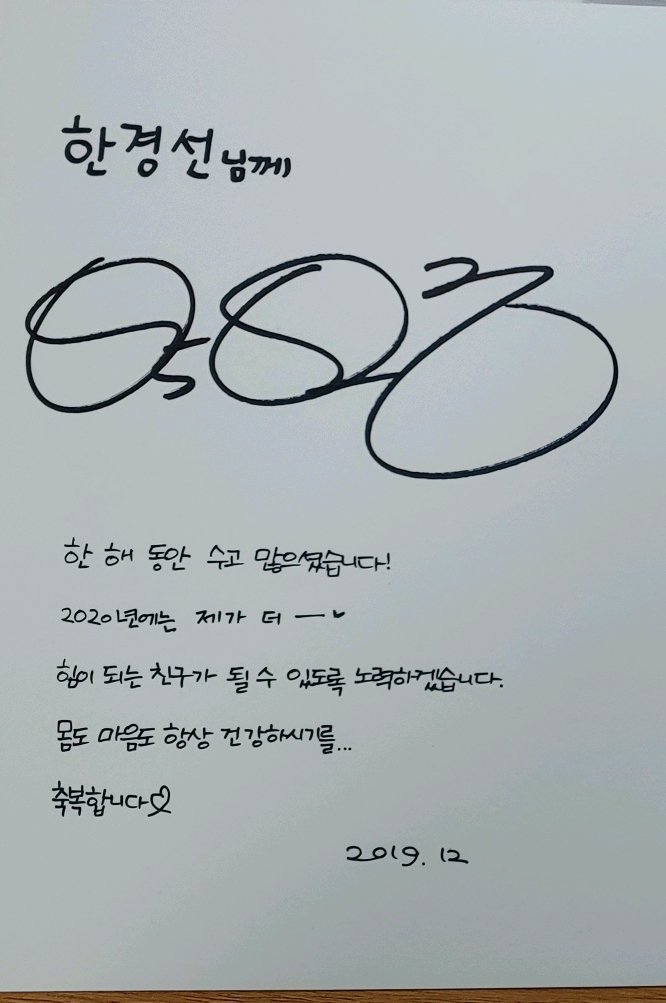 한경선님께
한 해 동안 수고 많으셨습니다!
2020년에는 제가 더 ―
힘이 되는 친구가 될 수 있도록 노력하겠습니다.
몸도 마음도 항상 건강하시기를...
축복합니다♡
2019. 12